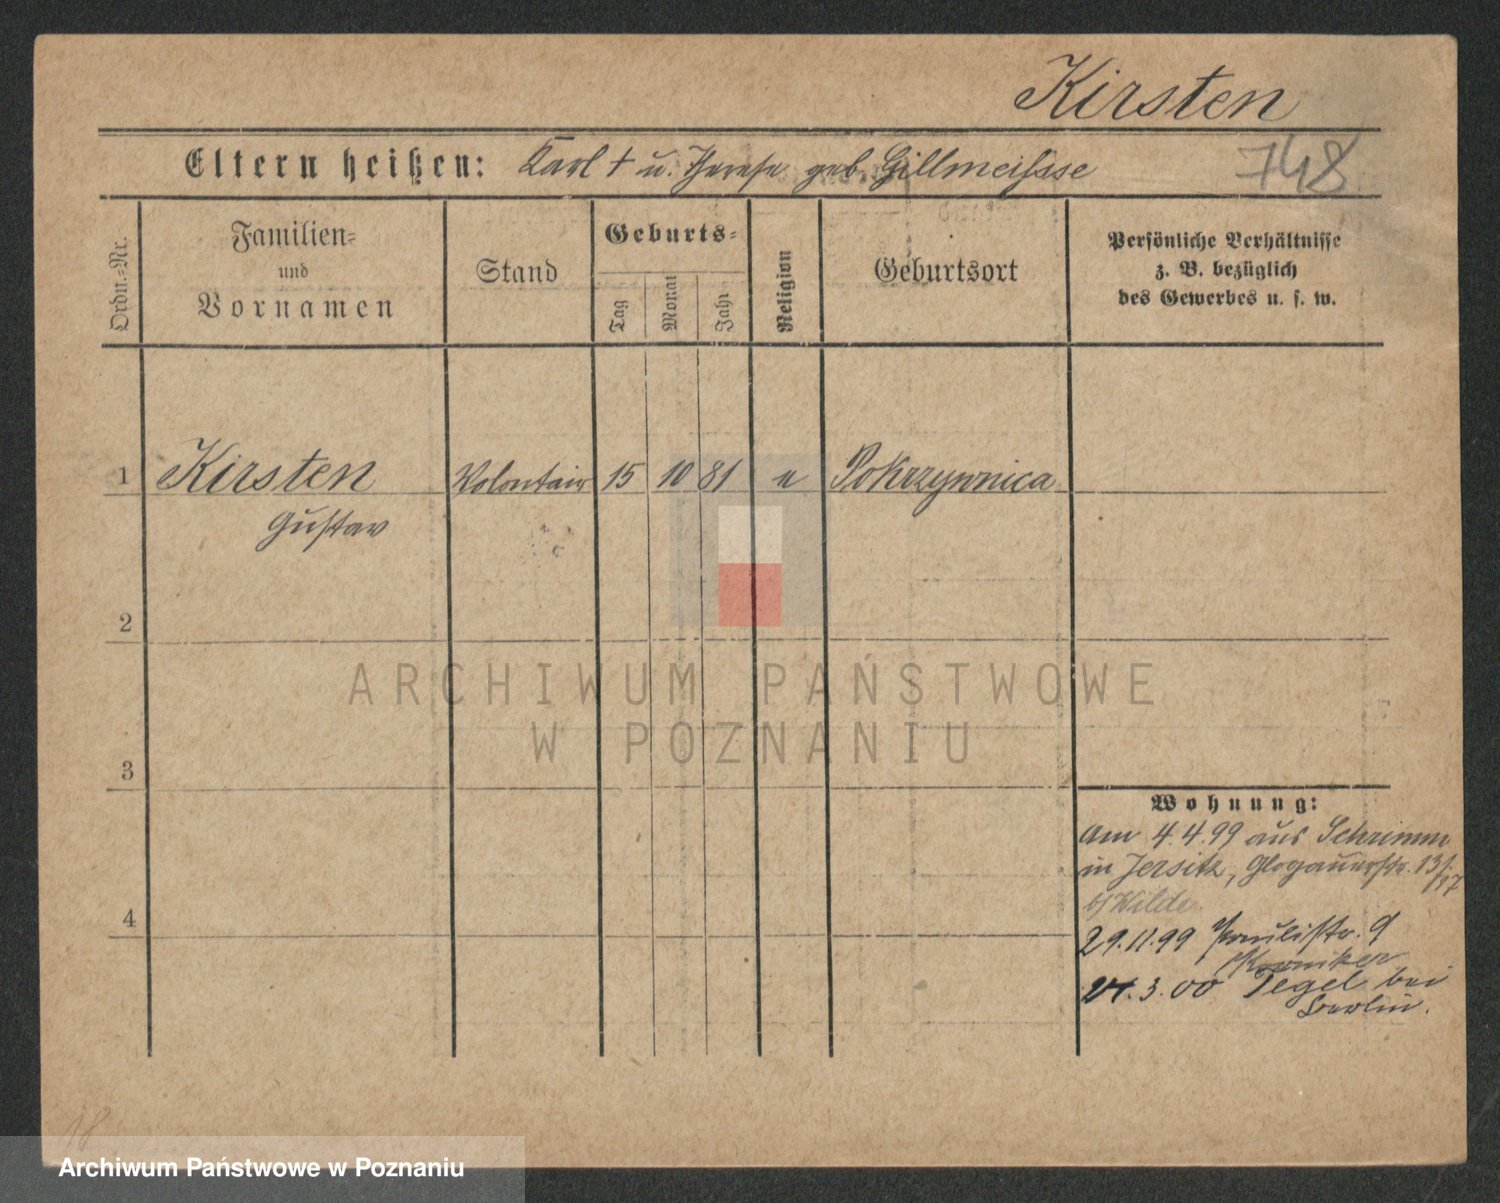 Kirsten
Eltern heißen: Karl † u. Therese geb. Gillmeisse
748
Ordn.=Nr.
Familien=
und
Vornamen
Stand
Geburts=
Tag
Monat
Jahr
Religion
Geburtsort
Persönliche Verhältnisse
z. B. bezüglich
des Gewerbes u. s. w.
1 Kirsten Volontair 15 10 81 Pokrzywnica
Gustav
2
3
4
Wohnung:
am 4.4.99 aus Schrimm
in Jersitz, Glogauerstr. 13/
b/ Wilde
29.11.99 Paulistr. 9
3.00 Tegel bei
Berlin.
18
ARCHIWUM PAŃSTWOWE
W POZNANIU
Archiwum Państwowe w Poznaniu